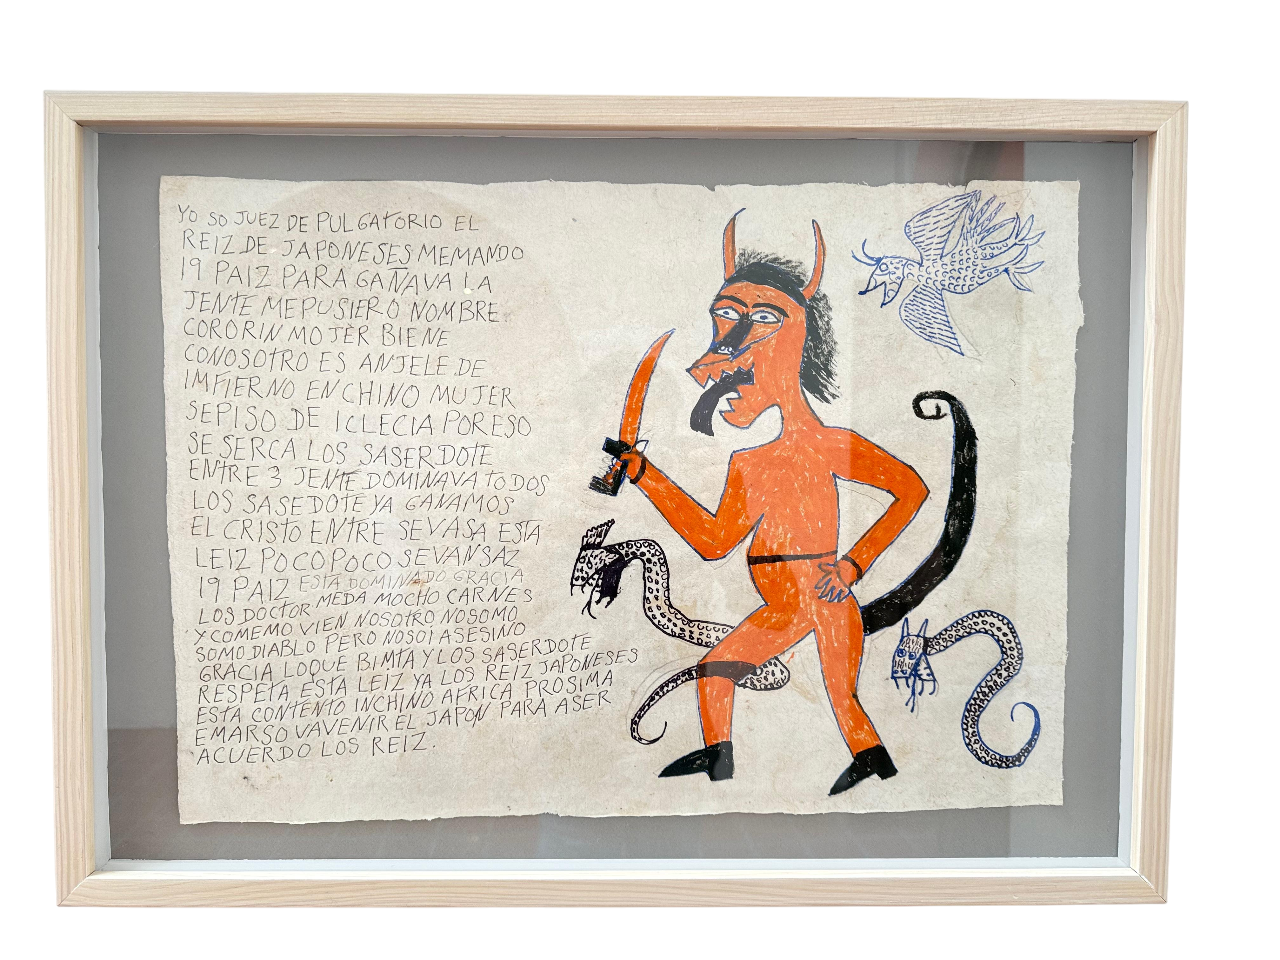 YO SO JUEZ DE PULGATORIO EL
REIZ DE JAPONESES MEMANDO
19 PAIZ PARA GAÑAVA LA
JENTE MEPUSIERO NOMBRE
CORORIN MOJER BIENE
CONOSOTRO ES ANJELE DE
IMFIERNO EN CHINO MUJER
SEPISO DE ICLECIA PORESO
SE SERCA LOS SASERDOTE
ENTRE 3 JENTE DOMINAVA TODOS
LOS SASEDOTE YA GANAMOS
EL CRISTO ENTRE SEVASA ESTA
LEIZ POCO POCO SEVAN SAZ
19 PAIZ ESTA DOMINADO GRACIA
LOS DOCTOR MEDA MOCHO CARNES
Y COMEMO VIEN NOSOTRO NOSOMO
SOMO DIABLO PERO NOSOI ASESINO
GRACIA LOQUE BIMTA Y LOS SASERDOTE
RESPETA ESTA LEIZ YA LOS REIZ JAPONESES
ESTA CONTENTO INCHINO AFRICA PROSIMA
EMARSO VAVENIR EL JAPON PARA ASER
ACUERDO LOS REIZ.